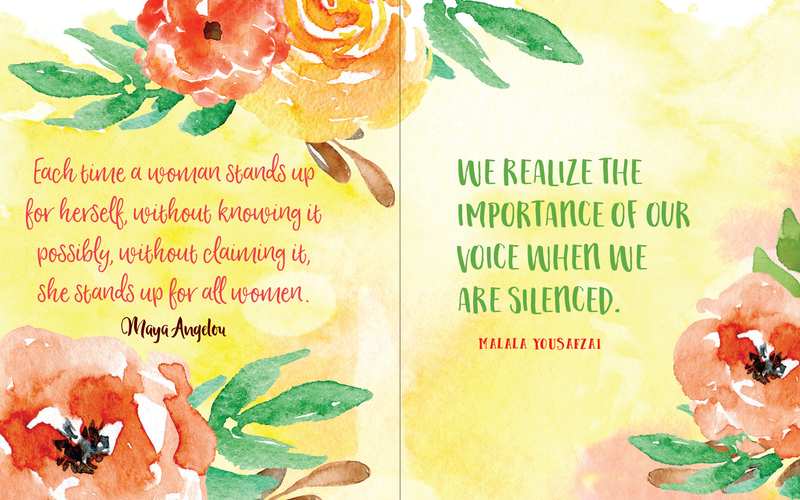 Each time a woman stands up
for herself, without knowing it
possibly, without claiming it,
she stands up for all women.
Maya Angelou
WE REALIZE THE
IMPORTANCE OF OUR
VOICE WHEN WE
ARE SILENCED.
MALALA YOUSAFZAI